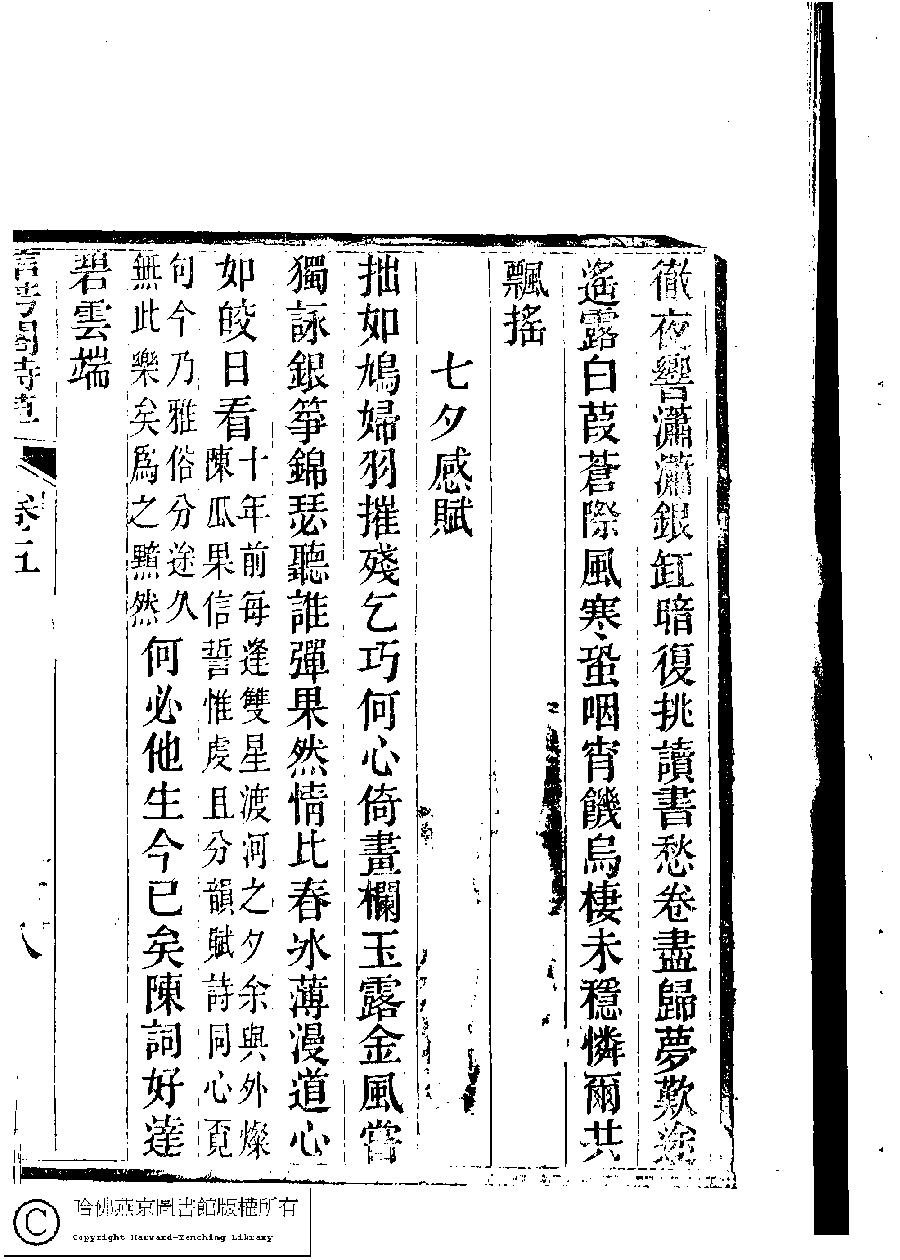 徹夜響瀟瀟銀缸暗復挑讀書愁卷盡歸夢歎途
遙露白葭蒼際風寒蛩咽宵饑烏棲未穩憐爾共
飄搖
七夕感賦
拙如鳩婦羽摧殘乞巧何心倚畫欄玉露金風嘗
獨詠銀箏錦瑟聽誰彈果然情比春冰薄漫道心
如皎日看
十年前每逢雙星渡河之夕余與外燦
陳瓜果信誓惟虔且分韻賦詩同心覓
句今乃雅俗分途久
無此樂矣爲之黯然
何必他生今已矣陳詞好達
碧雲端
信芳閣詩草 卷五 十八
哈佛燕京圖書館版權所有
Copyright Harvard-Yenching Library